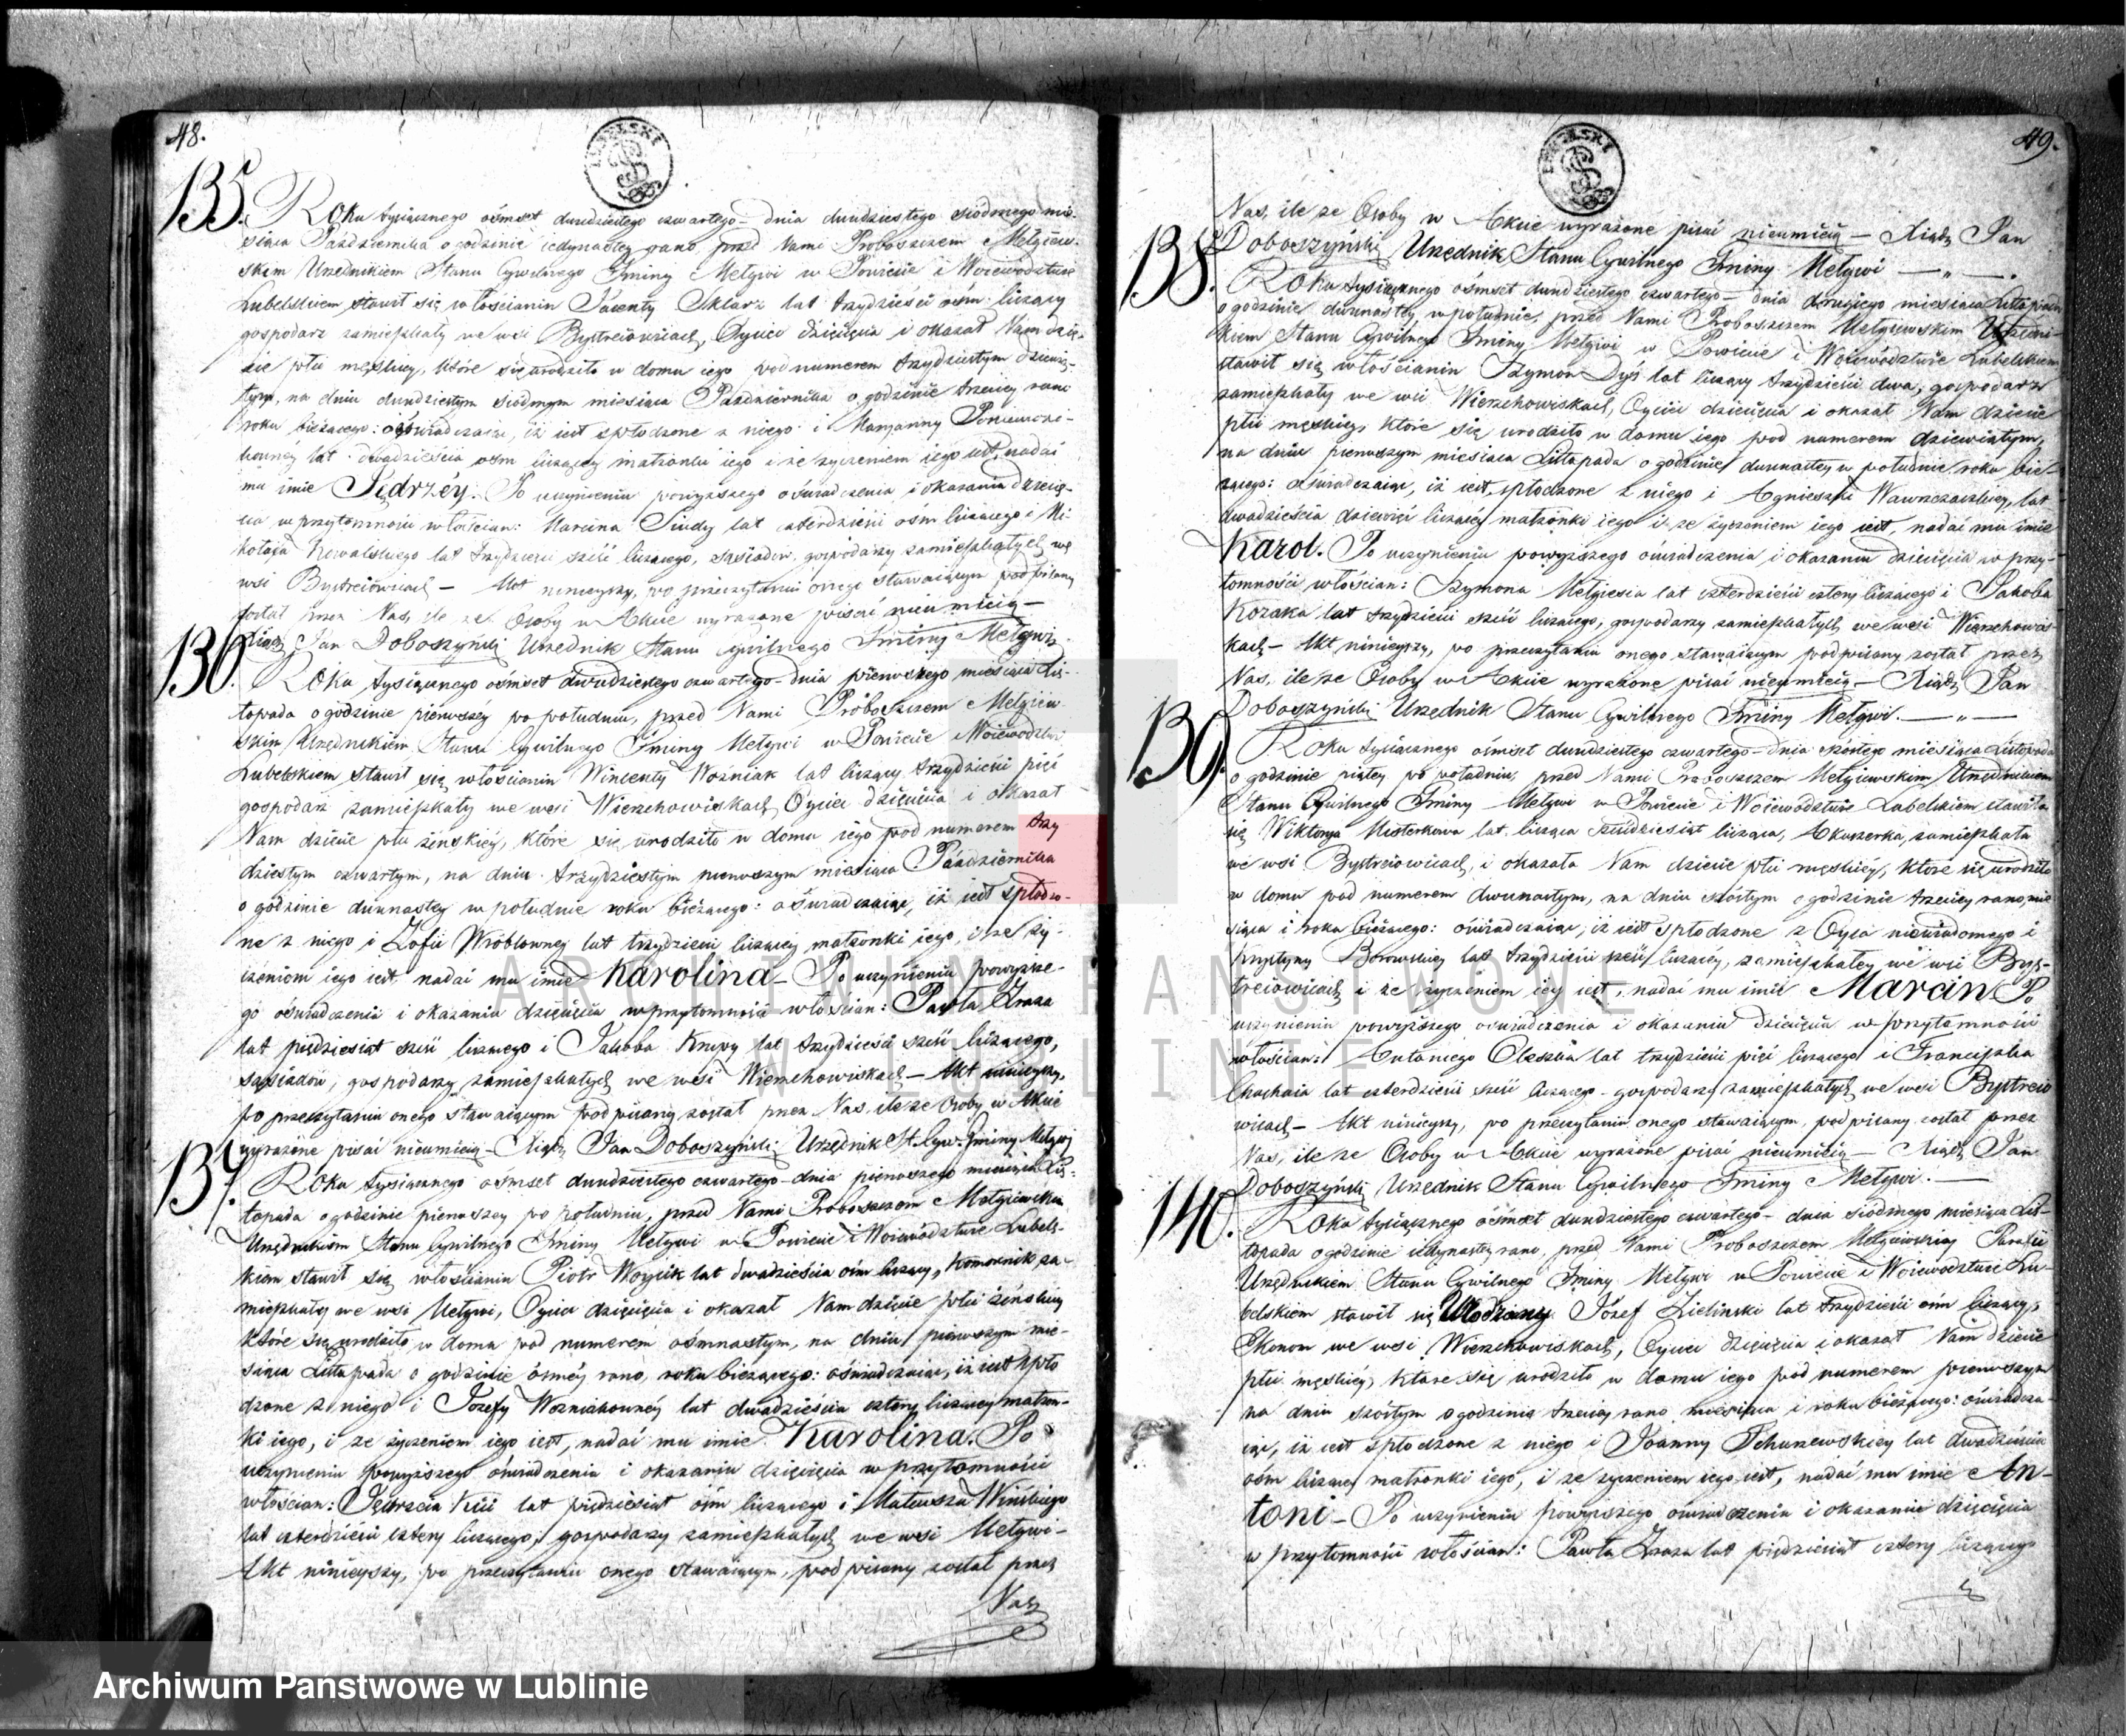 48.
135.
Roku tysiącznego ośmset dwudziestego czwartego – dnia dwudziestego siódmego mie-
siąca Października o godzinie iedynastey rano przed Nami Proboszczem Mełgiew-
skim Urzędnikiem Stanu Cywilnego Gminy Mełgwi w Powiecie i Woiewodztwie
Lubelskiem stawił się włościanin Jacenty Sklarz lat trzydzieści ośm liczący
gospodarz zamieszkały we wsi Bystrzeiowicach, Oyciec dziecięcia i okazał Nam dzie-
cie płci męskiey, które się urodziło w domu iego pod numerem trzydziestym dziewią-
tym, na dniu dwudziestym siódmym miesiąca Października o godzinie trzeciey rano
roku bieżącego: oświadczaiąc, iż iest spłodzone z niego i Maryanny
lat dwadzieścia ośm liczącey małżonki iego i że życzeniem iego iest, nadać
mu imie Jędrzéy. Po uczynieniu powyższego oświadczenia i okazaniu dziecię-
cia w przytomności włościan: Marcina Siudy lat czterdzieści ośm liczącego i Mi-
kołaja Kowalskiego lat trzydzieści sześć liczącego, sąsiadów, gospodarzy zamieszkałych we
wsi Bystrzeiowicach – Akt ninieyszy, po przeczytaniu onego stawaiącym podpisany
został przez Nas, ile że Osoby w Akcie wyrażone pisać nieumieią –
Xiądz Jan Doboszyński Urzędnik Stanu Cywilnego Gminy Mełgwi
136.
Roku tysiącznego ośmset dwudziestego czwartego – dnia pierwszego miesiąca Lis-
topada o godzinie pierwszéy po południu, przed Nami Proboszczem Mełgiew-
skim Urzędnikiem Stanu Cywilnego Gminy Mełgwi w Powiecie i Woiewodztwie
Lubelskiem stawił się włościanin Wincenty Woźniak lat liczący trzydzieści pięć
gospodarz zamieszkały we wsi Wierzchowiskach Oyciec dziecięcia i okazał
Nam dziecie płci żeńskiéy, które się urodziło w domu iego pod numerem trzy
dziestym czwartym, na dniu trzydziestym pierwszym miesiąca Października
o godzinie dwunastey w południe roku bieżącego: oświadczaiąc, iż iest spłodzo-
ne z niego i Zofii Wróblowney lat trzydzieści liczącey małżonki iego, i że ży-
czeniem iego iest nadać mu imie Karolina – Po uczynieniu powyższe-
go oświadczenia i okazaniu dziecięcia w przytomności włościan: Pawła Zraza
lat pięćdziesiąt sześć liczącego i Jakoba Knipy lat trzydzieści sześć liczącego,
sąsiadów, gospodarzy zamieszkałych we wsi Wierzchowiskach – Akt ninieyszy,
po przeczytaniu onego stawaiącym podpisany został przez Nas, ile że Osoby w Akcie
wyrażone pisać nieumieią – Xiądz Jan Doboszyński Urzędnik St. Cyw. Gminy Mełgwi
137.
Roku tysiącznego ośmset dwudziestego czwartego – dnia pierwszego miesiąca Lis-
topada o godzinie pierwszey po południu, przed Nami Proboszczem Mełgiewskim
Urzędnikiem Stanu Cywilnego Gminy Mełgwi w Powiecie i Woiewodztwie Lubels-
kiem stawił się włościanin Piotr Woycik lat dwadzieścia ośm liczący, Komornik za-
mieszkały we wsi Mełgwi, Oyciec dziecięcia i okazał Nam dziecie płci żeńskiey
które się urodziło w domu pod numerem ośmnastym, na dniu pierwszym mie-
siąca Listopada o godzinie ósméy rano, roku bieżącego: oświadczaiąc, iż iest spło
dzone z niego i Józefy Woźniakownéy lat dwadzieścia cztery liczącey małżon-
ki iego, i że życzeniem iego iest, nadać mu imie Karolina. Po
uczynieniu powyższego oświadczenia i okazaniu dziecięcia w przytomności
włościan: Jędrzeia Kiii lat pięćdziesiąt ośm liczącego i Mateusza Wińskiego
lat czterdzieści cztery liczącego, gospodarzy zamieszkałych we wsi Mełgwi –
Akt ninieyszy, po przeczytaniu onego stawaiącym, podpisany został przez
Nas
49.
Nas, ile że Osoby w Akcie wyrażone pisać nieumieią – Xiądz Jan
Doboszyński Urzędnik Stanu Cywilnego Gminy Mełgwi — „ —
138.
Roku tysiącznego ośmset dwudziestego czwartego – dnia drugiego miesiąca Listopada
o godzinie dwunastey w południe, przed Nami Proboszczem Mełgiewskim Urzędni-
kiem Stanu Cywilnego Gminy Mełgwi w Powiecie i Woiewodztwie Lubelskiem
stawił się włościanin Szymon Dyś lat liczący trzydzieści dwa, gospodarz
zamieszkały we wsi Wierzchowiskach, Oyciec dziecięcia i okazał Nam dziecie
płci męskiey, które się urodziło w domu iego pod numerem dziewiątym,
na dniu pierwszym miesiąca Listopada o godzinie dwunastey w południe, roku bie-
żącego: oświadczaiąc, iż iest spłodzone z niego i Agnieszki Wawrzczackiey, lat
dwadzieścia dziewięć liczącey małżonki iego i że życzeniem iego iest, nadać mu imie
Karol. Po uczynieniu powyższego oświadczenia i okazaniu dziecięcia w przy-
tomności włościan: Szymona Mełgiesia lat czterdzieści cztery liczącego i Jakoba
Kozaka lat trzydzieści sześć liczącego, gospodarzy zamieszkałych we wsi Wierzchowis
kach – Akt ninieyszy, po przeczytaniu onego stawaiącym podpisany został przez
Nas, ile że Osoby w Akcie wyrażone pisać nieumieią – Xiądz Jan
Doboszyński Urzędnik Stanu Cywilnego Gminy Mełgwi. — „ —
139.
Roku tysiącznego ośmset dwudziestego czwartego – dnia szóstego miesiąca Listopada
o godzinie piątey po południu, przed Nami Proboszczem Mełgiewskim Urzędnikiem
Stanu Cywilnego Gminy Mełgwi w Powiecie i Woiewodztwie Lubelskiem stawiła
się Wiktorya Misterkowa lat licząca sześćdziesiąt licząca, Akuszerka, zamieszkała
we wsi Bystrzeiowicach, i okazała Nam dziecie płci męskiey, które się urodziło
w domu pod numerem dwunastym, na dniu szóstym o godzinie trzeciey rano, mie
siąca i roku bieżącego: oświadczaiąc, iż iest spłodzone z Oyca niewiadomego i
Krystyny Borowskiey lat trzydzieści sześć liczącey, zamieszkałey we wsi Bys-
trzeiowicach i że życzeniem iey iest, nadać mu imie Marcin Po
uczynieniu powyższego oświadczenia i okazaniu dziecięcia w przytomności
włościan: Antoniego Oleszka lat trzydzieści pięć liczącego i Franciszka
Chachaia lat czterdzieści sześć liczącego – gospodarzy zamieszkałych we wsi Bystrzeio
wicach – Akt ninieyszy, po przeczytaniu onego stawaiącym, podpisany został przez
Nas, ile że Osoby w Akcie wyrażone pisać nieumieią – Xiądz Jan
Doboszyński Urzędnik Stanu Cywilnego Gminy Mełgwi. —
140.
Roku tysiącznego ośmset dwudziestego czwartego – dnia siódmego miesiąca Lis-
topada o godzinie iedynastey rano, przed Nami Proboszczem Mełgiewskiey Parafii
Urzędnikiem Stanu Cywilnego Gminy Mełgwi w Powiecie i Woiewodztwie Lu-
belskiem stawił się Urodzony Józef Zieliński lat trzydzieści ośm liczący,
Ekonom we wsi Wierzchowiskach, Oyciec dziecięcia i okazał Nam dziecie
płci męskiey, które się urodziło w domu iego pod numerem pierwszym
na dniu szóstym o godzinie trzeciey rano miesiąca i roku bieżącego: oświadcza-
iąc, iż iest spłodzone z niego i Joanny Tchurzewskiey lat dwadzieścia
ośm liczącey małżonki iego, i że życzeniem iego iest, nadać mu imie An-
toni – Po uczynieniu powyższego oświadczenia i okazaniu dziecięcia
w przytomności włościan: Pawła Zraza lat pięćdziesiąt cztery liczącego
ARCHIWUM PAŃSTWOWE
W LUBLINIE
Archiwum Państwowe w Lublinie